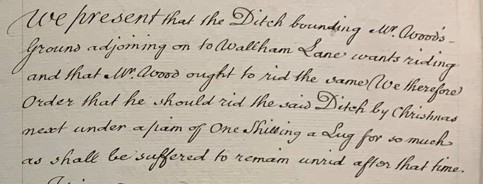 We present that the Ditch bounding Mr. Wood's
Ground adjoining on to Waltham Lane wants riding
and that Mr. Wood ought to rid the same We therefore
Order that he should rid the said Ditch by Christmas
next under a pain of One Shilling a Lug for so much
as shall be suffered to remain unrid after that time.